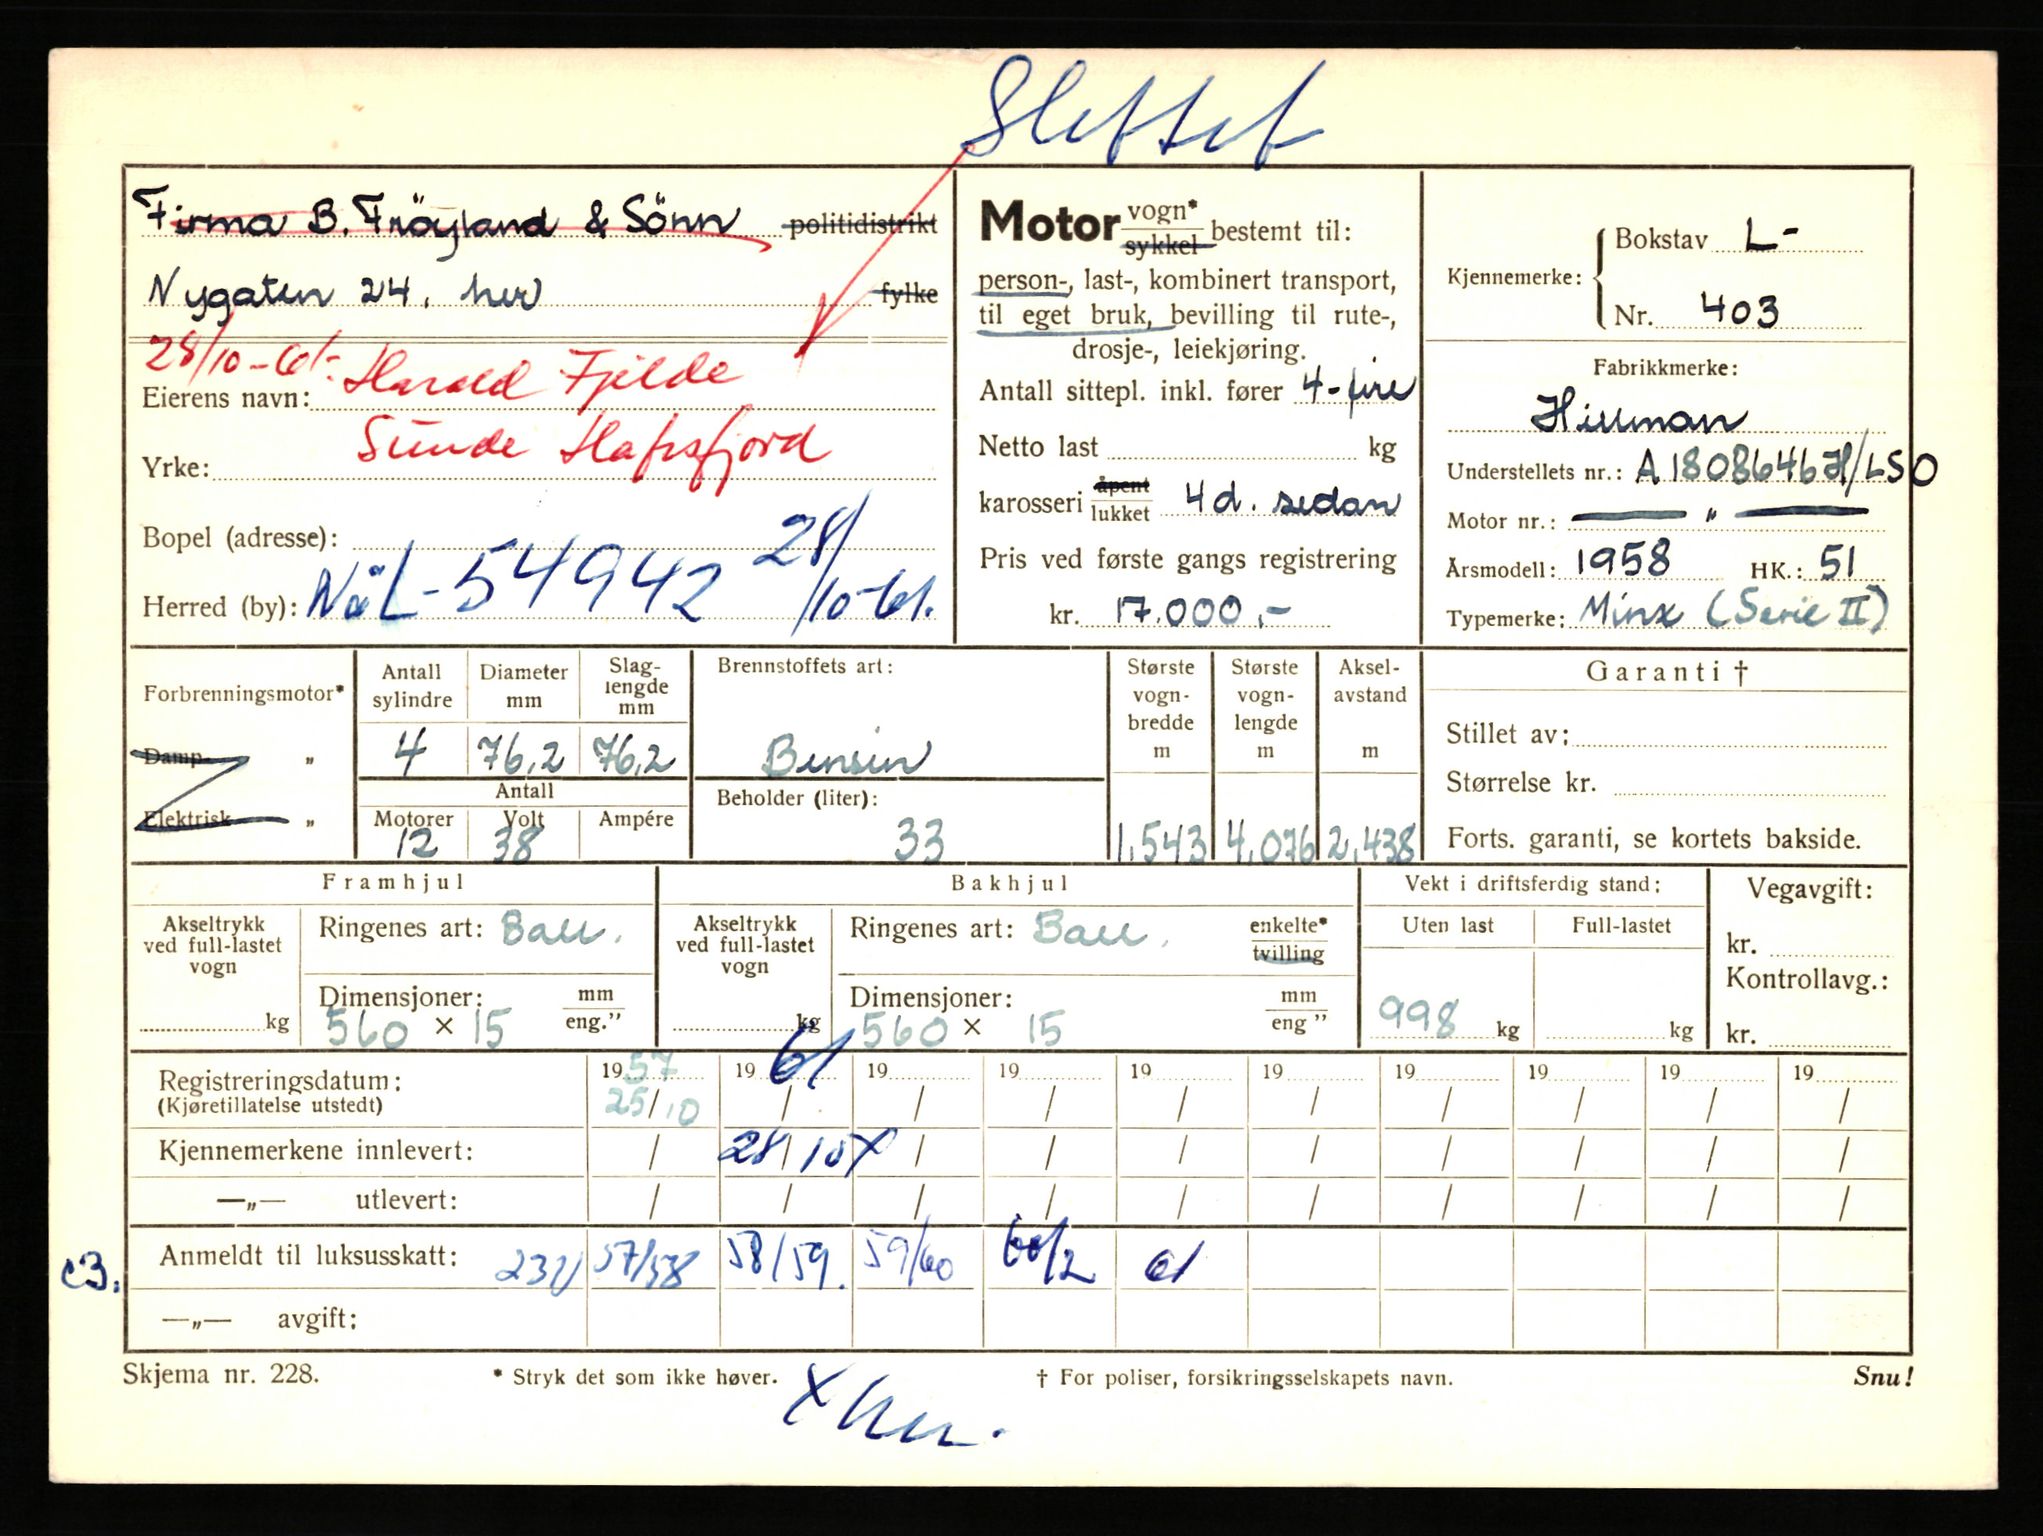 Slettet
Firma B. Fröyland & Sönn politidistrikt
Nygaten 24, her fylke
28/10-61. Harald Fjelde
Eierens navn:
Sunde Hafrsfjord
Yrke:
Bopel (adresse):
Herred (by): Nå L-54942 28/10-61.
Motor vogn* sykkel bestemt til:
person-, last-, kombinert transport,
til eget bruk, bevilling til rute-,
drosje-, leiekjøring.
Antall sittepl. inkl. fører 4-fire
Netto last kg
karosseri åpent lukket 4d. sedan
Pris ved første gangs registrering
kr. 17.000,-
Kjennemerke: Bokstav L-
Nr. 403
Fabrikkmerke:
Hillman
Understellets nr.: A1808646H/LSO
Motor nr.: — " —
Årsmodell: 1958 HK.: 51
Typemerke: Minx (Serie II)
Forbrenningsmotor*
Damp- "
Elektrisk "
Antall sylindre 4
Diameter mm 76,2
Slag-lengde mm 76,2
Antall
Motorer 12
Volt 38
Ampére
Brennstoffets art:
Bensin
Beholder (liter):
33
Største vogn-bredde m 1,543
Største vogn-lengde m 4,076
Aksel-avstand m 2,438
Garanti †
Stillet av:
Størrelse kr.
Forts. garanti, se kortets bakside.
Framhjul
Akseltrykk ved full-lastet vogn kg
Ringenes art: Ball.
Dimensjoner: mm eng."
560 × 15
Bakhjul
Akseltrykk ved full-lastet vogn kg
Ringenes art: Ball. enkelte* tvilling
Dimensjoner: mm eng"
560 × 15
Vekt i driftsferdig stand:
Uten last 998 kg
Full-lastet kg
Vegavgift:
kr.
Kontrollavg.:
kr.
Registreringsdatum: 1957 1961 19 19 19 19 19 19 19 19
(Kjøretillatelse utstedt) 25/10 / / / / / / / / /
Kjennemerkene innlevert: / 28/10 X / / / / / / / /
—„— utlevert: / / / / / / / / / /
c3. Anmeldt til luksusskatt: 57/58 58/59. 59/60 60/2 61
—„— avgift:
Skjema nr. 228. * Stryk det som ikke høver. † For poliser, forsikringsselskapets navn. Snu!
X her.